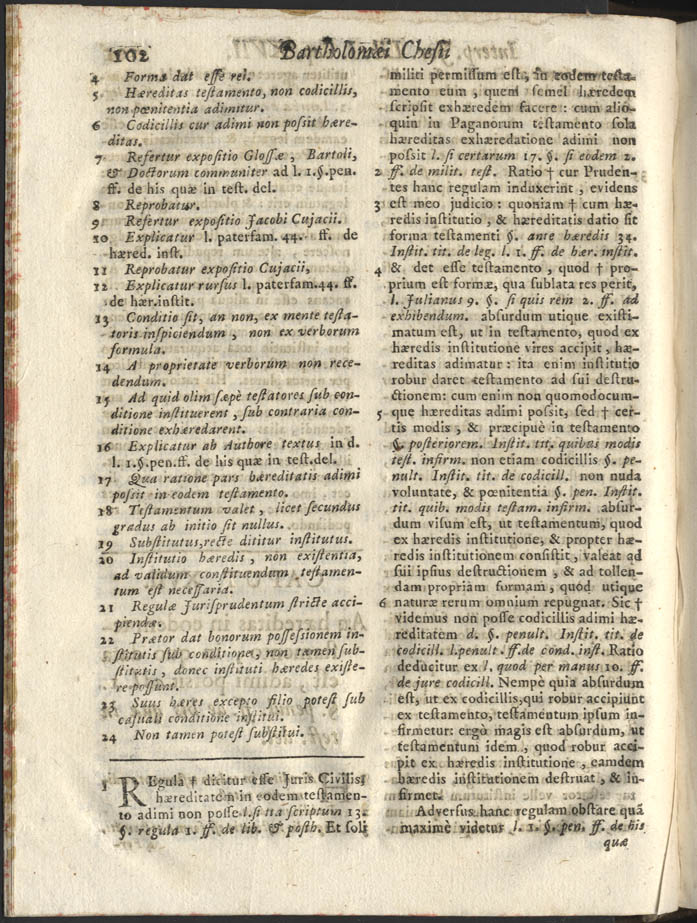 102 Bartholomæi Chesii
4 Forma dat esse rei.
5 Hæreditas testamento, non codicillis,
non pœnitentia adimitur.
6 Codicillis cur adimi non possit hære-
ditas.
7 Refertur expositio Glossæ, Bartoli,
& Doctorum communiter ad l. 1. §. pen.
ff. de his quæ in test. del.
8 Reprobatur.
9 Refertur expositio Jacobi Cujacii.
10 Explicatur l. paterfam. 44. ff. de
hæred. inst.
11 Reprobatur expositio Cujacii,
12 Explicatur rursus l. paterfam. 44. ff.
de hær. instit.
13 Conditio sit, an non, ex mente testa-
toris inspiciendum, non ex verborum
formula.
14 A proprietate verborum non rece-
dendum.
15 Ad quid olim sæpè testatores sub con-
ditione instituerent, sub contraria con-
ditione exhæredarent.
16 Explicatur ab Authore textus in d.
l. 1. §. pen. ff. de his quæ in test. del.
17 Qua ratione pars hæreditatis adimi
possit in eodem testamento.
18 Testamentum valet, licet secundus
gradus ab initio sit nullus.
19 Substitutus, recte dititur institutus.
20 Institutio hæredis, non existentia,
ad validum constituendum testamen-
tum est necessaria.
21 Regulæ Jurisprudentum stricte acci-
piendæ.
22 Prætor dat bonorum possessionem in-
stitutis sub conditione, non tamen sub-
stitutis, donec instituti hæredes existe-
re possunt.
23 Suus hæres excepto filio potest sub
casuali conditione institui.
24 Non tamen potest substitui.
1 REgula † dicitur esse Juris Civilis,
hæreditatem in eodem testamen-
to adimi non posse l. si ita scriptum 13.
§. regula 1. ff. de lib. & posth. Et soli
militi permissum est, in eodem testa-
mento eum, quem semel hæredem
scripsit exhæredem facere: cum alio-
quin in Paganorum testamento sola
hæreditas exhæredatione adimi non
possit l. si certarum 17. §. si eodem 2.
2 ff. de milit. test. Ratio † cur Pruden-
tes hanc regulam induxerint, evidens
3 est meo judicio: quoniam † cum hæ-
redis institutio, & hæreditatis datio sit
forma testamenti §. ante hæredis 34.
Instit. tit. de leg. l. 1. ff. de hær. instit.
4 & det esse testamento, quod † pro-
prium est formæ, qua sublata res perit,
l. Julianus 9. §. si quis rem 2. ff. ad
exhibendum. absurdum utique existi-
matum est, ut in testamento, quod ex
hæredis institutione vires accipit, hæ-
reditas adimatur: ita enim institutio
robur daret testamento ad sui destru-
ctionem: cum enim non quomodocum-
5 que hæreditas adimi possit, sed † cer-
tis modis, & præcipuè in testamento
§. posteriorem. Instit. tit. quibus modis
test. infirm. non etiam codicillis §. pe-
nult. Instit. tit. de codicill. non nuda
voluntate, & pœnitentia §. pen. Instit.
tit. quib. modis testam. infirm. absur-
dum visum est, ut testamentum, quod
ex hæredis institutione, & propter hæ-
redis institutionem consistit, valeat ad
sui ipsius destructionem, & ad tollen-
dam propriam formam, quod utique
6 naturæ rerum omnium repugnat. Sic †
videmus non posse codicillis adimi hæ-
reditatem d. §. penult. Instit. tit. de
codicill. l. penult. ff. de cond. inst. Ratio
deducitur ex l. quod per manus 10. ff.
de jure codicill. Nempè quia absurdum
est, ut ex codicillis, qui robur accipiunt
ex testamento, testamentum ipsum in-
firmetur: ergò magis est absurdum, ut
testamentum idem, quod robur acci-
pit ex hæredis institutione, eamdem
hæredis institutionem destruat, & in-
firmet.
Adversus hanc regulam obstare quã
maximè videtur l. 1. §. pen. ff. de his
quæ